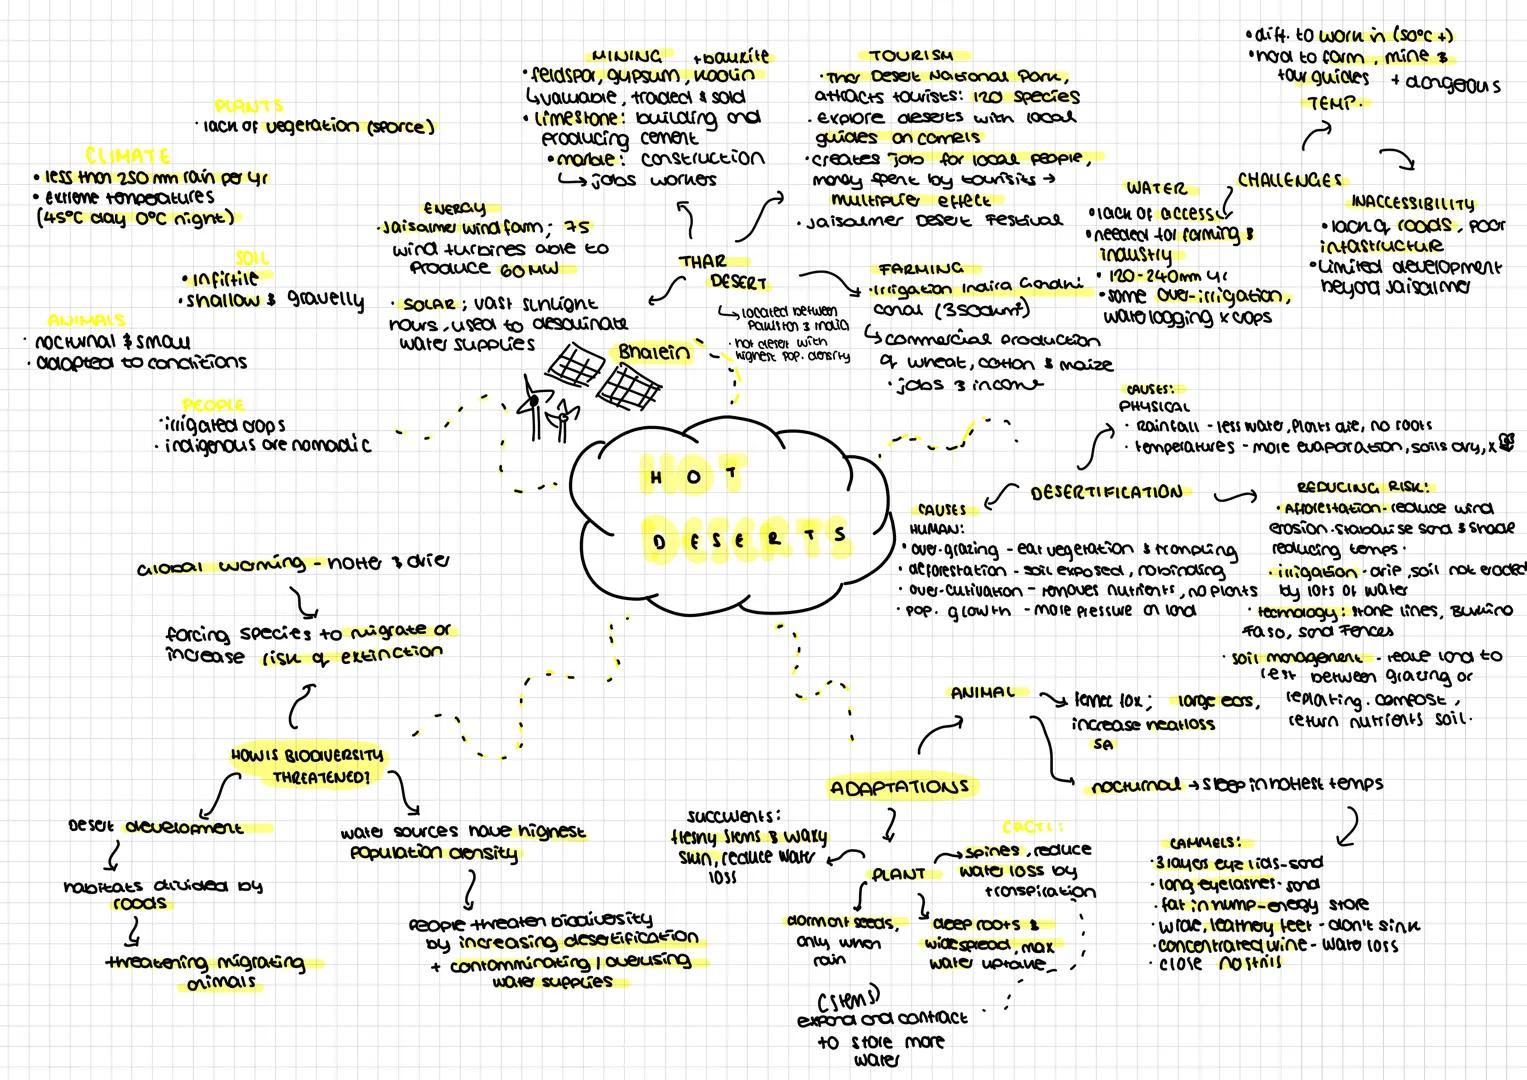 PLANTS
· lack of vegeration (sparce)
CLIMATE
• less than 250 mm rain per yr
• extreme temperatures
(45°C day 0°C night)
SOIL
• infirtile
• shallow & gravelly
ANIMALS
· nocturnal & small
· adapted to conditions
PEOPLE
· irrigated crops
· indigenous are nomadic
MINING + bauxite
• feldspar, gypsum, kaolin
↳ valuable, traded & sold
• limestone: building and
producing cement
• marble: construction
↳ jobs workers
TOURISM
· Thar Desert National Park,
attracts tourists: 120 species
· explore deserts with local
guides on camels
· creates job for local people,
money spent by tourists →
multiplier effect
· Jaisalmer Desert Festival
ENERGY
· Jaisalmer wind farm; 75
wind turbines able to
produce 60 MW
· SOLAR; vast sunlight
hours, used to desalinate
water supplies
Bhalein
THAR
DESERT
↳ located between
Pakistan & India
· hot desert with
highest pop. density
FARMING
· Irrigation Indira Gandhi
canal (3500km²)
↳ commercial production
of wheat, cotton & maize
· jobs & income
• diff. to work in (50°C +)
• hard to farm, mine &
tour guides + dangeous
TEMP.
CHALLENGES
WATER
• lack of access
• needed for farming &
industry
• 120-240mm yr
• some over-irrigation,
waterlogging x crops
INACCESSIBILITY
• lack of roads, poor
infastructure
• limited development
beyond Jaisalmer
HOT
DESERTS
CAUSES:
PHYSICAL
· Rainfall - less water, plants die, no roots
· temperatures - more evaporation, soils dry, x
DESERTIFICATION
CAUSES
HUMAN:
• over-grazing - eat vegetation & trampling
• deforestation - soil exposed, no binding
• over-cultivation - removes nutrients, no plants
• pop. growth - more pressure on land
REDUCING RISK:
· Afforestation - reduce wind
erosion. stabalise sand & shade
reducing temps.
· irrigation - drip, soil not eroded
by lots of water
· technology: stone lines, Burkino
Faso, sand fences
· soil management - leave land to
rest between grazing or
replanting. compost,
return nutrients soil.
Global warming - hotter & drier
forcing species to migrate or
increase risk of extinction
HOW IS BIODIVERSITY
THREATENED?
Desert development
habitats divided by
roads
threatening migrating
animals
water sources have highest
population density
people threaten biodiversity
by increasing desertification
+ contamminating / overusing
water supplies
ADAPTATIONS
ANIMAL
fennec fox; large ears,
increase heatloss
SA
nocturnal → sleep in hottest temps
CAMMELS:
· 3 layers eye lids - sand
· long eyelashes - sand
· fat in hump - energy store
· wide, leathery feet - don't sink
· concentrated urine - water loss
· close nostrils
PLANT
succulents:
fleshy stems & waxy
skin, reduce water
loss
CACTI:
spines, reduce
water loss by
transpiration
dormant seeds,
only when
rain
deep roots &
widespread, max
water uptake
(stems)
expand and contract
to store more
water